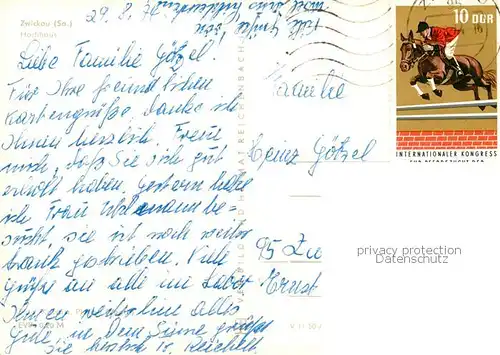 Zwickau (Sa.)
Hochhaus
29. 8. 74
Liebe Familie Götzel.
Für Ihre freundlichen
Kartengrüße danke ich
Ihnen herzlich. Freue
mich, daß Sie sich gut
erholt haben. Gestern habe
ich Frau be-
sucht, sie ist noch weiter
krank geschrieben. Viele
Grüße an alle im Labor
Ihnen weiterhin alles
Gute, in dem Sinne grüßt
Sie herzlich
Familie
Heinz Götzel
95 Zw
Ernst
10 DDR
INTERNATIONALER KONGRESS
privacy protection
Datenschutz
V 11 50